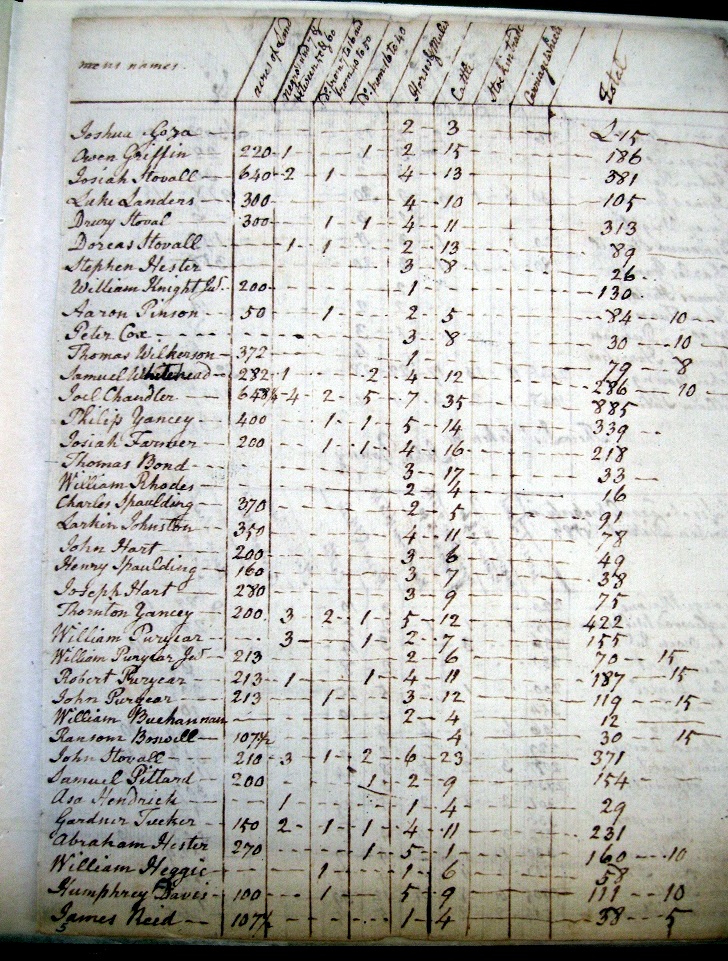 mens names. acres of Land negroes Do from 16 to 40 Horses & Mules Cattle Stock in trade Carriage wheels Total
Joshua Goza 2 3 £15
Owen Griffin 220 1 1 2 15 186
Josiah Stovall 640 2 1 4 13 381
Luke Landers 300 4 10 105
Drury Stoval 300 1 1 4 11 313
Dorcas Stovall 1 1 2 13 89
Stephen Hester 3 8 26
William Knight Jur. 200 1 130
Aaron Pinson 50 1 2 5 84 10
Peter Cox 3 8 30 10
Thomas Wilkerson 372 1 79 8
Samuel Whitehead 282 1 2 4 12 286 10
Joel Chandler 648½ 4 2 5 7 35 885
Philip Yancey 400 1 1 5 14 339
Josiah Farmer 200 1 1 4 16 218
Thomas Bond 3 17 33
William Rhodes 2 4 16
Charles Spaulding 370 2 5 91
Larkin Johnston 350 4 11 78
John Hart 200 3 6 49
Henry Spaulding 160 3 7 38
Joseph Hart 280 3 9 75
Thornton Yancey 200 3 2 1 5 12 422
William Puryear 3 1 2 7 155
William Puryear Jur 213 2 6 70 15
Robert Puryear 213 1 1 4 11 187 15
John Puryear 213 1 3 12 119 15
William Buchannan 2 4 12
Ransom Boswell 107½ 4 30 15
John Stovall 210 3 1 2 6 23 371
Samuel Pittard 200 1 2 9 154
Asa Hendrick 1 1 4 29
Gardner Tucker 150 2 1 1 4 11 231
Abraham Hester 270 1 5 1 160 10
William Heggie 1 1 6 58
Humphrey Davis 100 1 5 9 111 10
James Reed 107½ 1 4 38 5